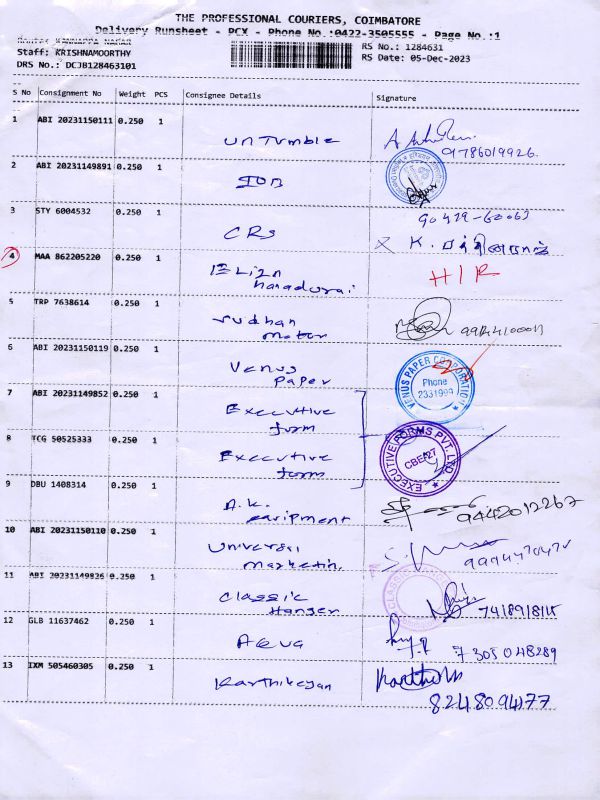 THE PROFESSIONAL COURIERS, COIMBATORE
Delivery Runsheet - PCX - Phone No.:0422-3505555 - Page No.:1
Route: KANNAPPA NAGAR
Staff: KRISHNAMOORTHY
RS No.: 1284631
DRS No.: DCJB128463101
RS Date: 05-Dec-2023
S No Consignment No Weight PCS Consignee Details Signature
1 ABI 20231150111 0.250 1
UnTumble
9786019926.
2 ABI 20231149891 0.250 1
IOB
3 STY 6004532 0.250 1
CRS
90429-60063
K.
4 MAA 862205220 0.250 1
Hanadurai
H/R
5 TRP 7638614 0.250 1
Sudhan
motor
6 ABI 20231150119 0.250 1
Venus
Paper
VENUS PAPER CORPORATION
Phone
2331999
7 ABI 20231149852 0.250 1
Executive
form
8 TCG 50525333 0.250 1
Executive
forms
EXECUTIVE FORMS PVT LTD
CBE-27
9 DBU 1408314 0.250 1
A.K.
Equipment
9442012267
10 ABI 20231150110 0.250 1
Universal
Marketing
11 ABI 20231149826 0.250 1
Classic
Hanger
CLASSIC
7418918115
12 GLB 11637462 0.250 1
Aqua
7305048289
13 IXM 505460305 0.250 1
Karthikeyan
8248094177